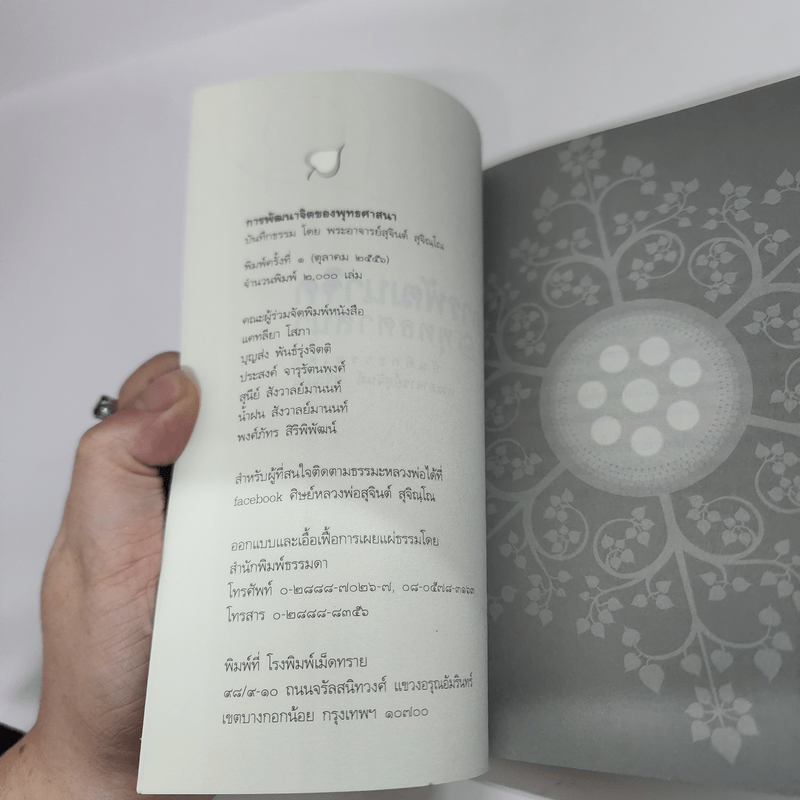 การพัฒนาจิตของพุทธศาสนา
บันทึกธรรม โดย พระอาจารย์สุจินต์ สุจิณฺโณ
พิมพ์ครั้งที่ ๑ (ตุลาคม ๒๕๕๖)
จำนวนพิมพ์ ๒,๐๐๐ เล่ม
คณะผู้ร่วมจัดพิมพ์หนังสือ
แคทลียา โสภา
บุญส่ง พันธ์รุ่งจิตติ
ประสงค์ จารุรัตนพงศ์
สุนีย์ สังวาลย์มานนท์
น้ำฝน สังวาลย์มานนท์
พงศ์ภัทร สิริพิพัฒน์
สำหรับผู้ที่สนใจติดตามธรรมะหลวงพ่อได้ที่
facebook ศิษย์หลวงพ่อสุจินต์ สุจิณฺโณ
ออกแบบและเอื้อเฟื้อการเผยแผ่ธรรมโดย
สำนักพิมพ์ธรรมดา
โทรศัพท์ ๐-๒๘๘๘-๗๐๒๖-๗, ๐๘-๐๕๗๘-๓๑๖๓
โทรสาร ๐-๒๘๘๘-๘๓๕๖
พิมพ์ที่ โรงพิมพ์เม็ดทราย
๙๘/๙-๑๐ ถนนจรัลสนิทวงศ์ แขวงอรุณอัมรินทร์
เขตบางกอกน้อย กรุงเทพฯ ๑๐๗๐๐